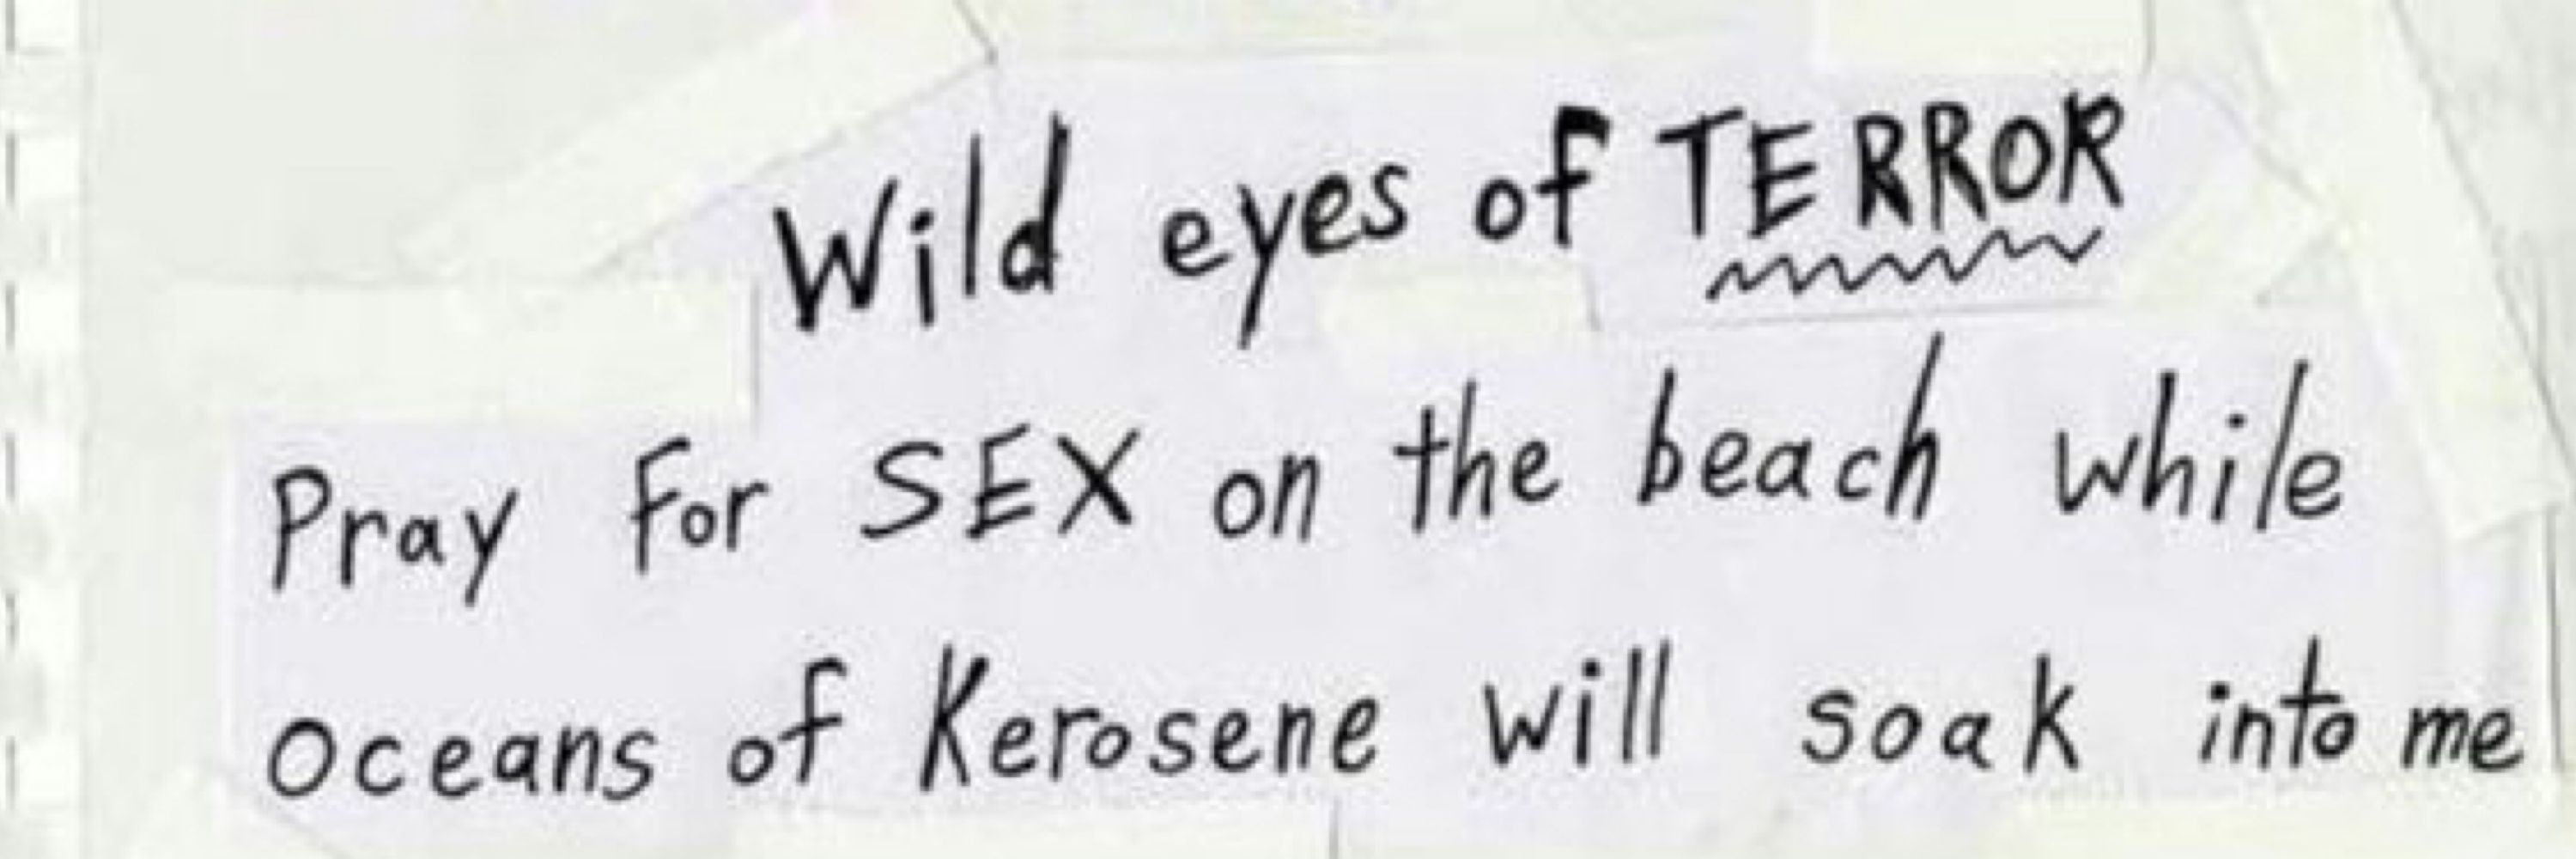 Wild eyes of TERROR
Pray For SEX on the beach while
Oceans of Kerosene will soak into me